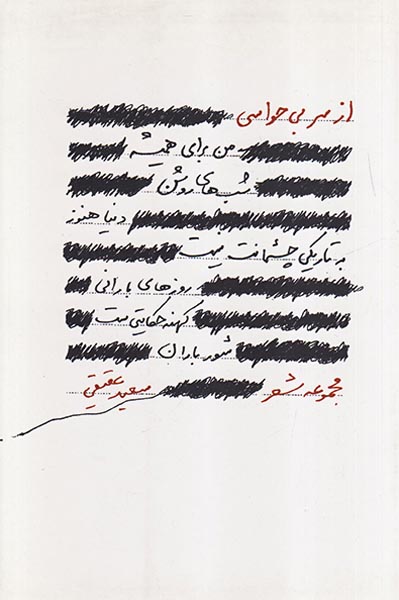 از سر بی حواسی
من برای همیشه
شب های روشن
دنیا هنوز
به تاریکی چشمانت نیست
روزهای بارانی
کهنه حکایتی ست
شور باران
مجموعه شعر سعید عقیقی